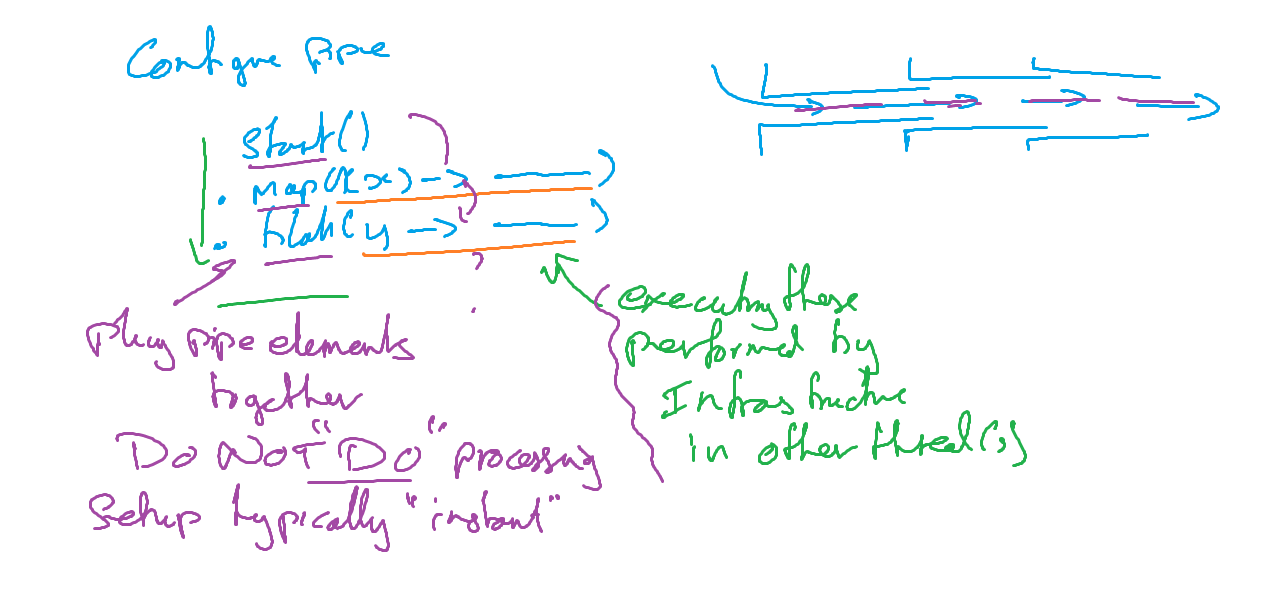 Configure Pipe
start()
. map((x) -> ——)
. blah(y -> ——)
Plug pipe elements
together
Do NOT "DO" processing
Setup typically "instant"
executing these
performed by
Infrastructure
in other thread(s)